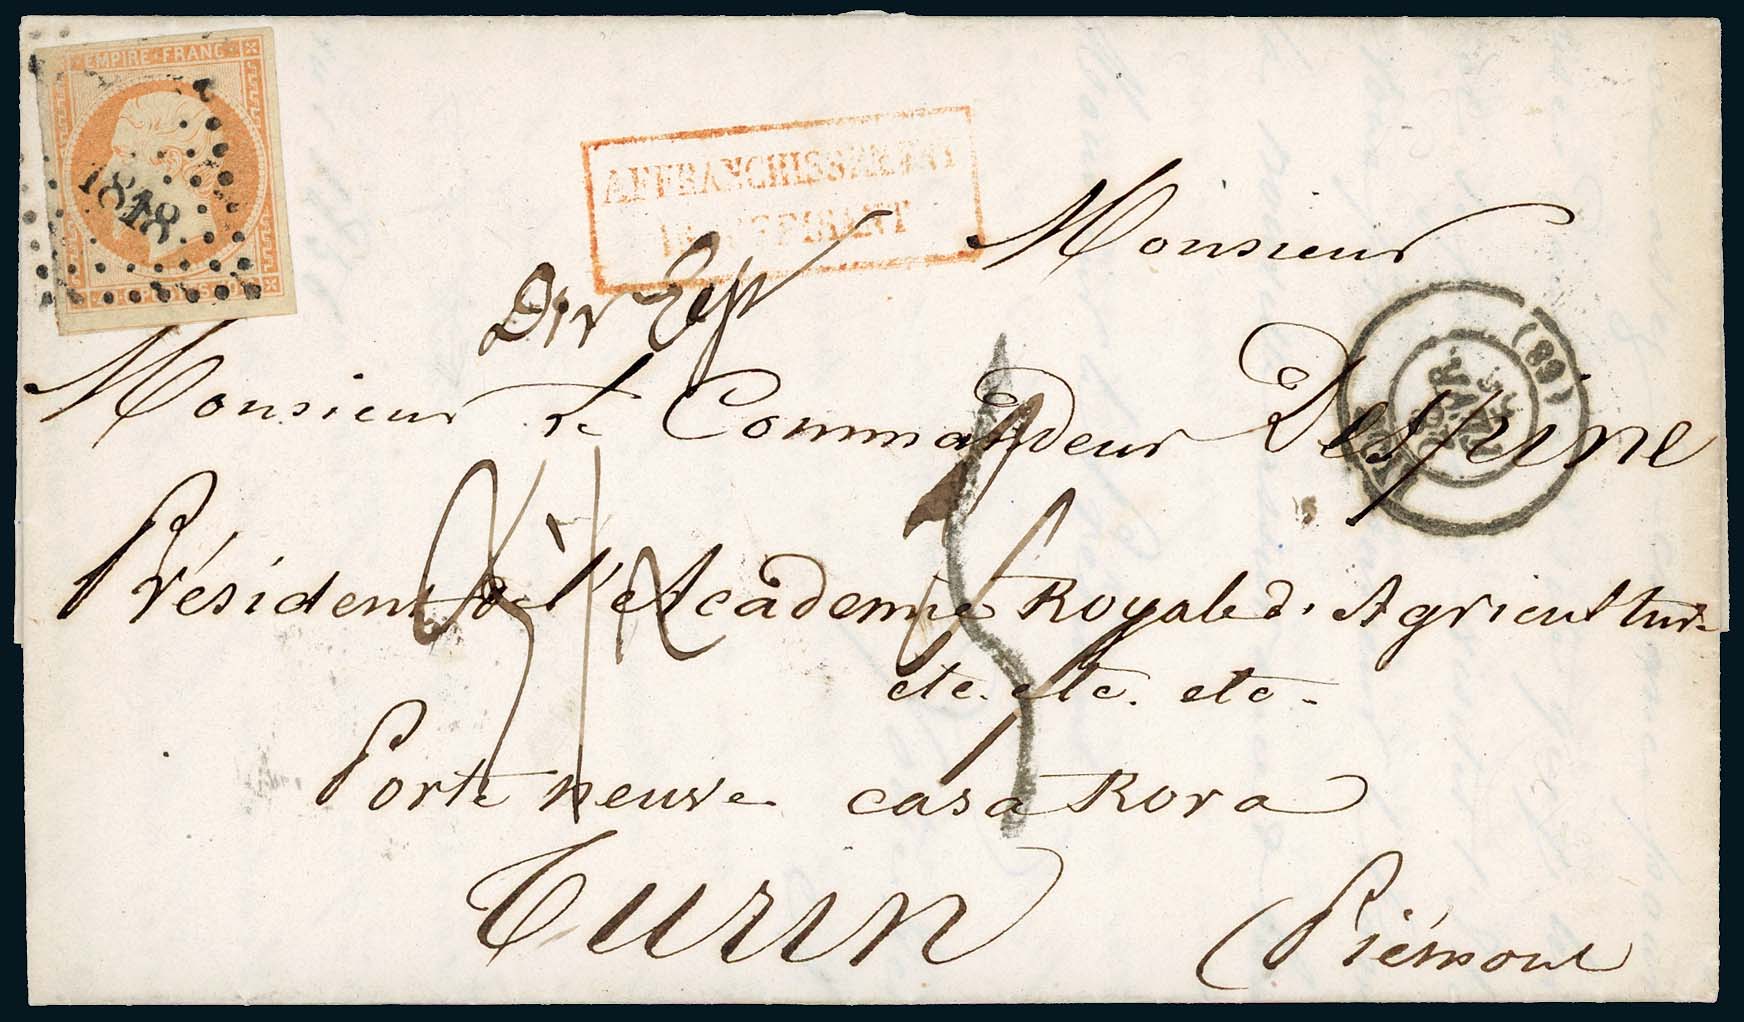 EMPIRE FRANC
1818
POSTES
AFFRANCHISSEMENT
INSUFFISANT
Monsieur
(68)
Monsieur le Commandeur Despine
Président de l'Academie Royale d'Agriculture
etc. etc. etc.
Porte neuve casa Rora
Turin
(Piémont